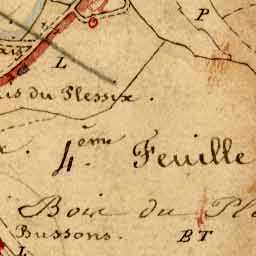 P
L
du Plessix.
4.ème Feuille
Bois du Pl
Bussons.
BT
L